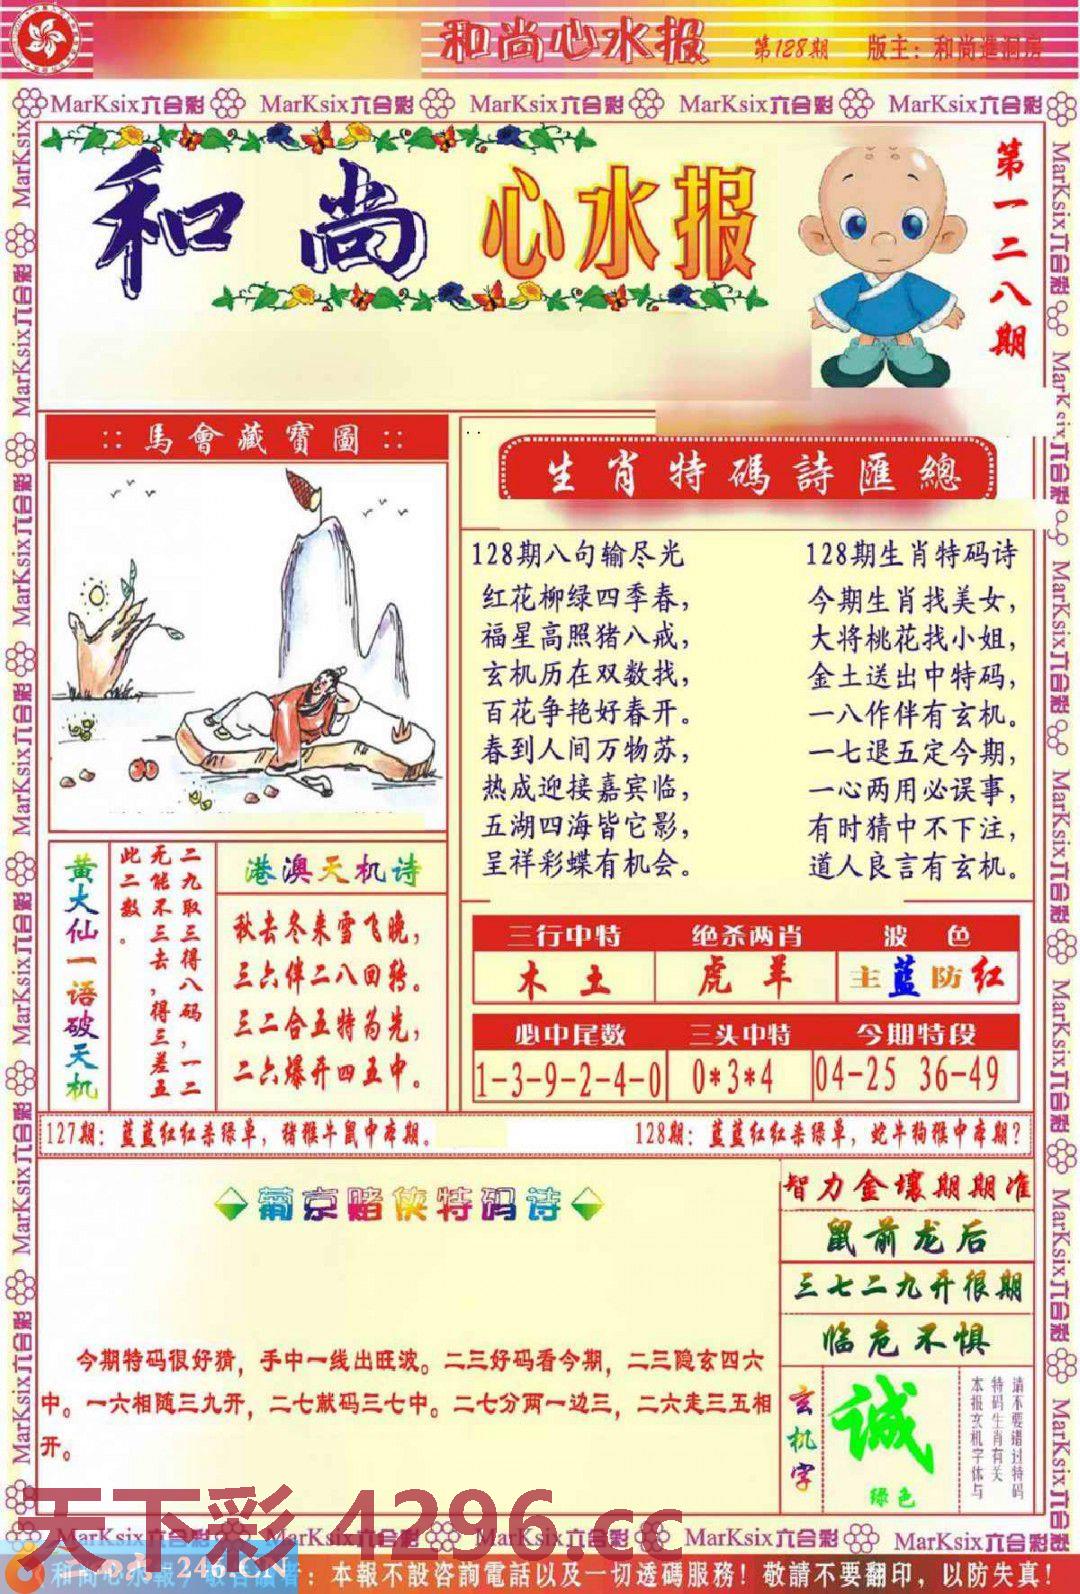 和尚心水报
第128期
版主：和尚進洞房
MarKsix六合彩 MarKsix六合彩 MarKsix六合彩 MarKsix六合彩 MarKsix六合彩
和尚 心水报
第一二八期
::馬會藏寶圖::
生肖特碼詩匯總
128期八句输尽光
红花柳绿四季春，
福星高照猪八戒，
玄机历在双数找，
百花争艳好春开。
春到人间万物苏，
热成迎接嘉宾临，
五湖四海皆它影，
呈祥彩蝶有机会。
128期生肖特码诗
今期生肖找美女，
大将桃花找小姐，
金土送出中特码，
一八作伴有玄机。
一七退五定今期，
一心两用必误事，
有时猜中不下注，
道人良言有玄机。
黄大仙一语破天机
二九取三得八码，一二
无能不三去，得三差五
此二数。
港澳天机诗
秋去冬来雪飞晚，
三六伴二八回转。
三二合五特为先，
二六爆开四五中。
三行中特 绝杀两肖 波色
木土 虎羊 主蓝防红
必中尾数 三头中特 今期特段
1-3-9-2-4-0 0*3*4 04-25 36-49
127期：蓝蓝红红杀绿单，猪猴牛鼠中本期。
128期：蓝蓝红红杀绿单，蛇牛狗猴中本期？
葡京赌侠特码诗
今期特码很好猜，手中一线出旺波。二三好码看今期，二三隐玄四六
中。一六相随三九开，二七献码三七中。二七分两一边三，二六走三五相
开。
智力金壤期期准
鼠前龙后
三七二九开很期
临危不惧
玄机字
诚
绿色
请不要错过特码
特码生肖有关
本报玄机字体与
天下彩 4296.cc
MarKsix六合彩 MarKsix六合彩 MarKsix六合彩 MarKsix六合彩 MarKsix六合彩
二四六 246.CN
：本報不設咨詢電話以及一切透碼服務！敬請不要翻印，以防失真！